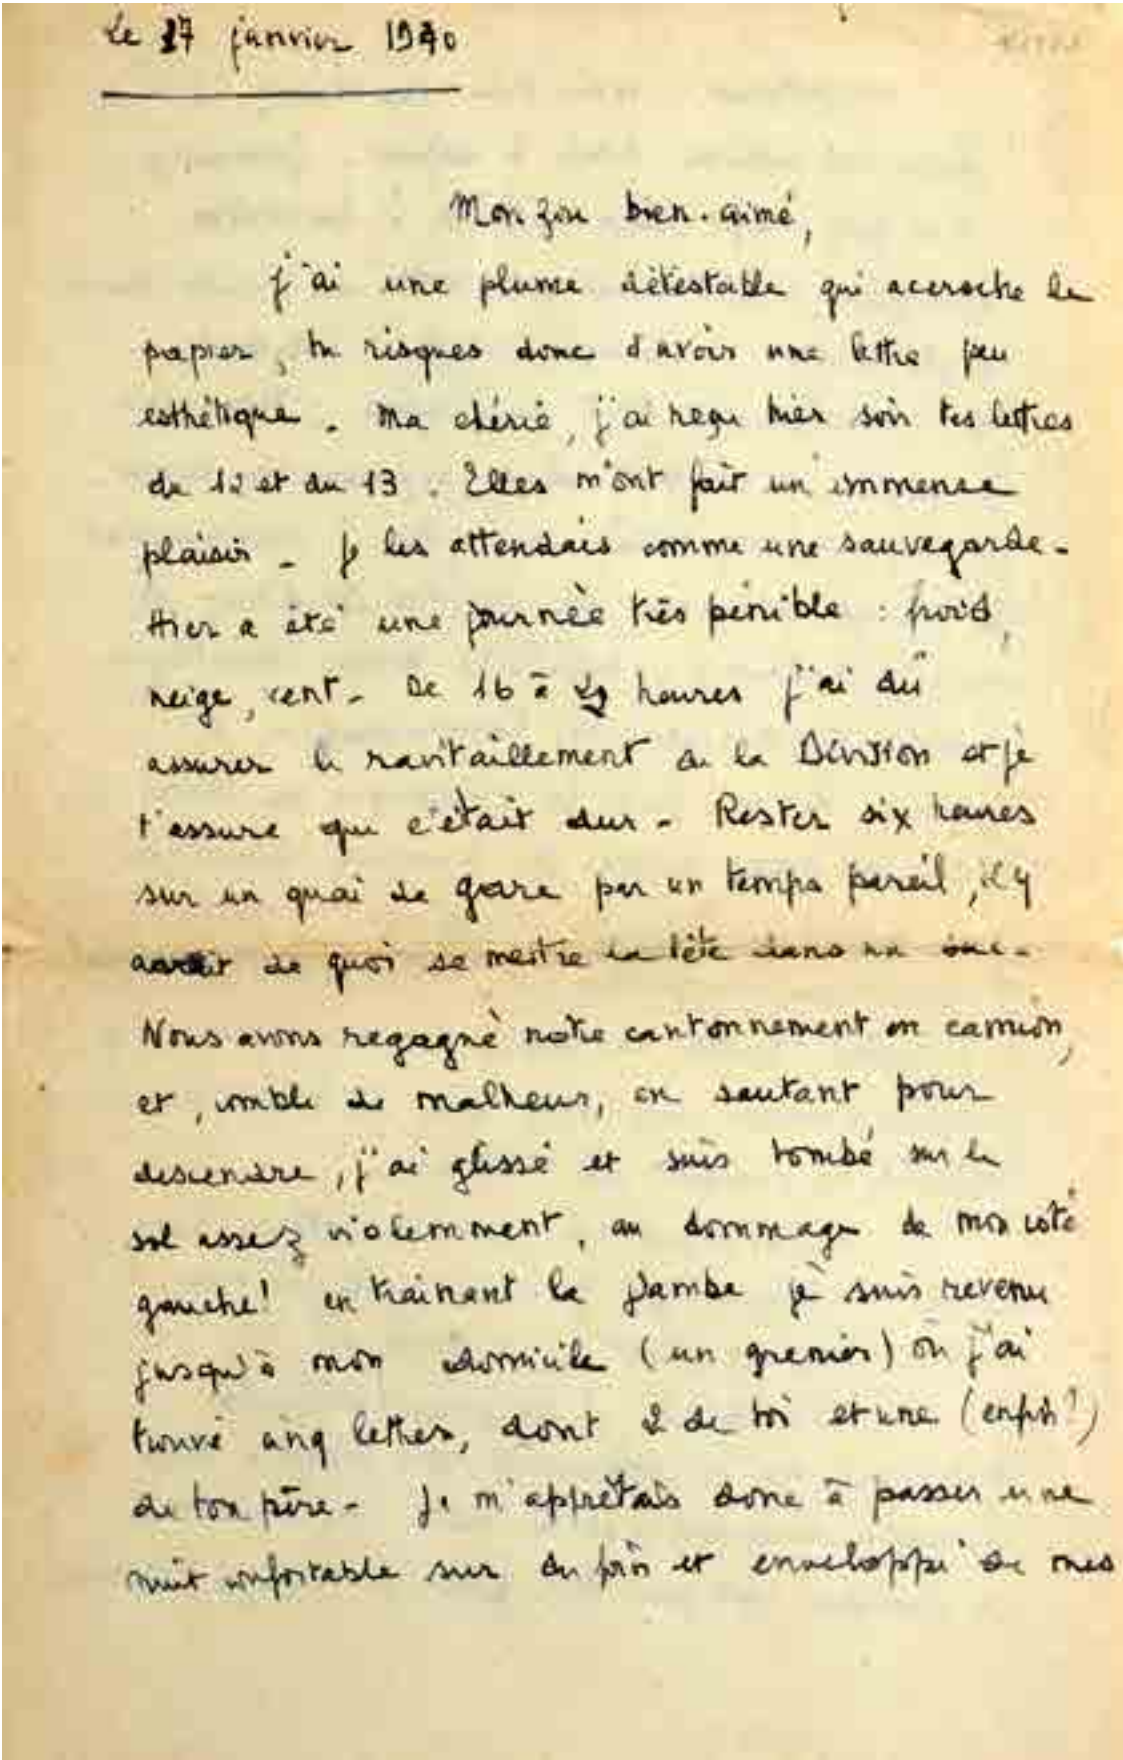 Le 17 janvier 1940
Mon zou bien-aimé,
j'ai une plume détestable qui accroche le
papier, tu risques donc d'avoir une lettre peu
esthétique. Ma chérie, j'ai reçu hier soir tes lettres
du 12 et du 13. Elles m'ont fait un immense
plaisir - Je les attendais comme une sauvegarde -
Hier a été une journée très pénible : froid,
neige, vent - De 16 à heures j'ai dû
assurer le ravitaillement de la Division et je
t'assure que c'était dur - Rester six heures
sur un quai de gare par un temps pareil, il y
avait de quoi se mettre la tête dans un sac -
Nous avons regagné notre cantonnement en camion,
et, comble de malheur, en sautant pour
descendre, j'ai glissé et suis tombé sur le
sol assez violemment, au dommage de mon côté
gauche! en traînant la jambe je suis revenu
jusqu'à mon domicile (un grenier) où j'ai
trouvé cinq lettres, dont 2 de toi et une (enfin!)
de ton père - Je m'apprêtais donc à passer une
nuit confortable sur du foin et enveloppé de mes